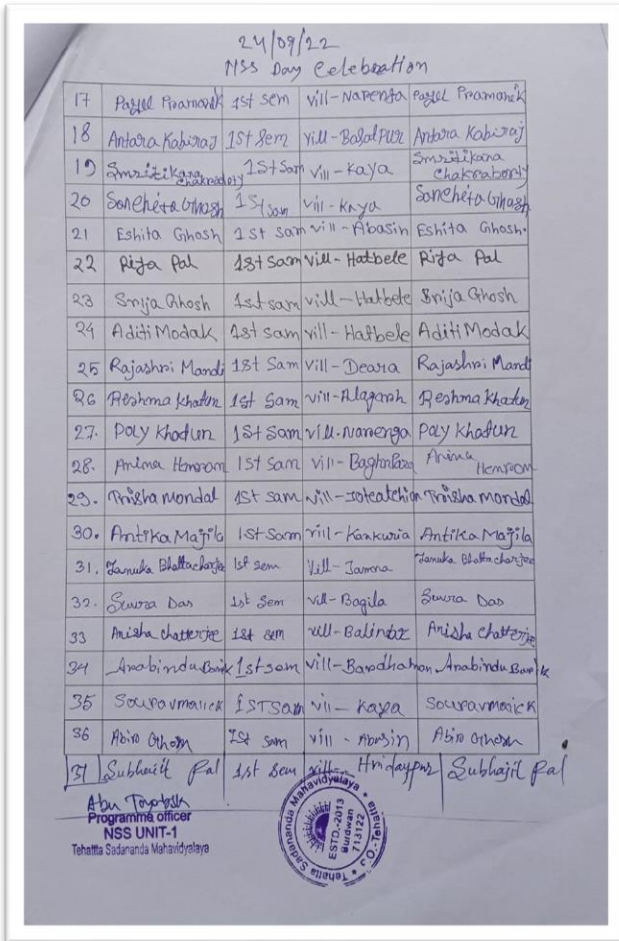 24/09/22
NSS Day Celebration
17 Payel Pramanik 1st Sem Vill-Narenga Payel Pramanik
18 Antara Kabiraj 1st Sem Vill-BasalPur Antara Kabiraj
19 Smritikana Chakraborty 1st Sam vill-Kaya Smritikana Chakraborty
20 Soncheta Ghosh 1st Sam vill-Kaya Soncheta Ghosh
21 Eshita Ghosh 1st sam vill-Abasin Eshita Ghosh.
22 Riya Pal 1st Sam Vill-Hatbele Riya Pal
23 Srija Ghosh 1st sam vill-Hatbele Srija Ghosh
24 Aditi Modak 1st sam vill-Hatbele Aditi Modak
25 Rajashri Mandi 1st Sam Vill-Deara Rajashri Mandi
26 Reshma Khatun 1st Sam Vill-Alagarh Reshma Khatun
27. Poly Khatun 1st Sam Vill.Narenga Poly Khatun
28. Anima Hemrom 1st Sam vill- Anima Hemrom
29. Trisha Mondal 1st Sam vill- Trisha Mondal
30. Antika Majila 1st Sam vill-Kankuria Antika Majila
31. Tanuka Bhattacharjee 1st Sem Vill-Jamna Tanuka Bhattacharjee
32. Suvra Das 1st Sem vill-Bagila Suvra Das
33 Anisha Chatterjee 1st sem vill- Anisha Chatterjee
34 Arabindu 1st sam vill-Bardhaman Arabindu
35 Souravmalick 1ST Sam vill-Kaya Souravmalick
36 Abir Ghosh 1st Sam vill-Abasin Abir Ghosh
37 Subhajit Pal 1st Sem vill-Hridaypur Subhajit Pal
Programme officer
NSS UNIT-1
Tehatta Sadananda Mahavidyalaya
Tehatta Sadananda Mahavidyalaya
P.O.-Tehatta
ESTD.-2013
Burdwan
713122